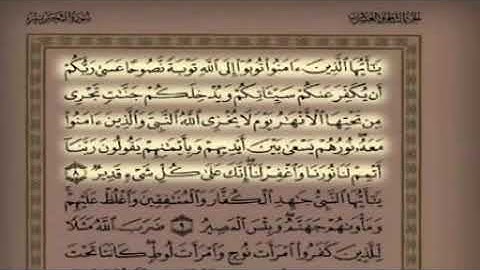 الجزء الثامن والعشرون سورة التحريم
يَـٰٓأَيُّهَا ٱلَّذِينَ ءَامَنُوا۟ تُوبُوٓا۟ إِلَى ٱللَّهِ تَوْبَةً نَّصُوحًا عَسَىٰ رَبُّكُمْ
أَن يُكَفِّرَ عَنكُمْ سَيِّـَٔاتِكُمْ وَيُدْخِلَكُمْ جَنَّـٰتٍ تَجْرِى
مِن تَحْتِهَا ٱلْأَنْهَـٰرُ يَوْمَ لَا يُخْزِى ٱللَّهُ ٱلنَّبِىَّ وَٱلَّذِينَ ءَامَنُوا۟
مَعَهُۥ نُورُهُمْ يَسْعَىٰ بَيْنَ أَيْدِيهِمْ وَبِأَيْمَـٰنِهِمْ يَقُولُونَ رَبَّنَآ
أَتْمِمْ لَنَا نُورَنَا وَٱغْفِرْ لَنَآ إِنَّكَ عَلَىٰ كُلِّ شَىْءٍ قَدِيرٌ ٨
يَـٰٓأَيُّهَا ٱلنَّبِىُّ جَـٰهِدِ ٱلْكُفَّارَ وَٱلْمُنَـٰفِقِينَ وَٱغْلُظْ عَلَيْهِمْ
وَمَأْوَىٰهُمْ جَهَنَّمُ وَبِئْسَ ٱلْمَصِيرُ ٩ ضَرَبَ ٱللَّهُ مَثَلًا
لِّلَّذِينَ كَفَرُوا۟ ٱمْرَأَتَ نُوحٍ وَٱمْرَأَتَ لُوطٍ كَانَتَا تَحْتَ